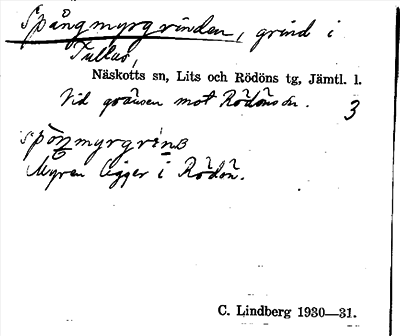 Spångmyrgrinden, grind i
Tullus,
Näskotts sn, Lits och Rödöns tg, Jämtl. l.
Vid gränsen mot Rödöns sn. 3
Myren ligger i Rödön.
C. Lindberg 1930—31.